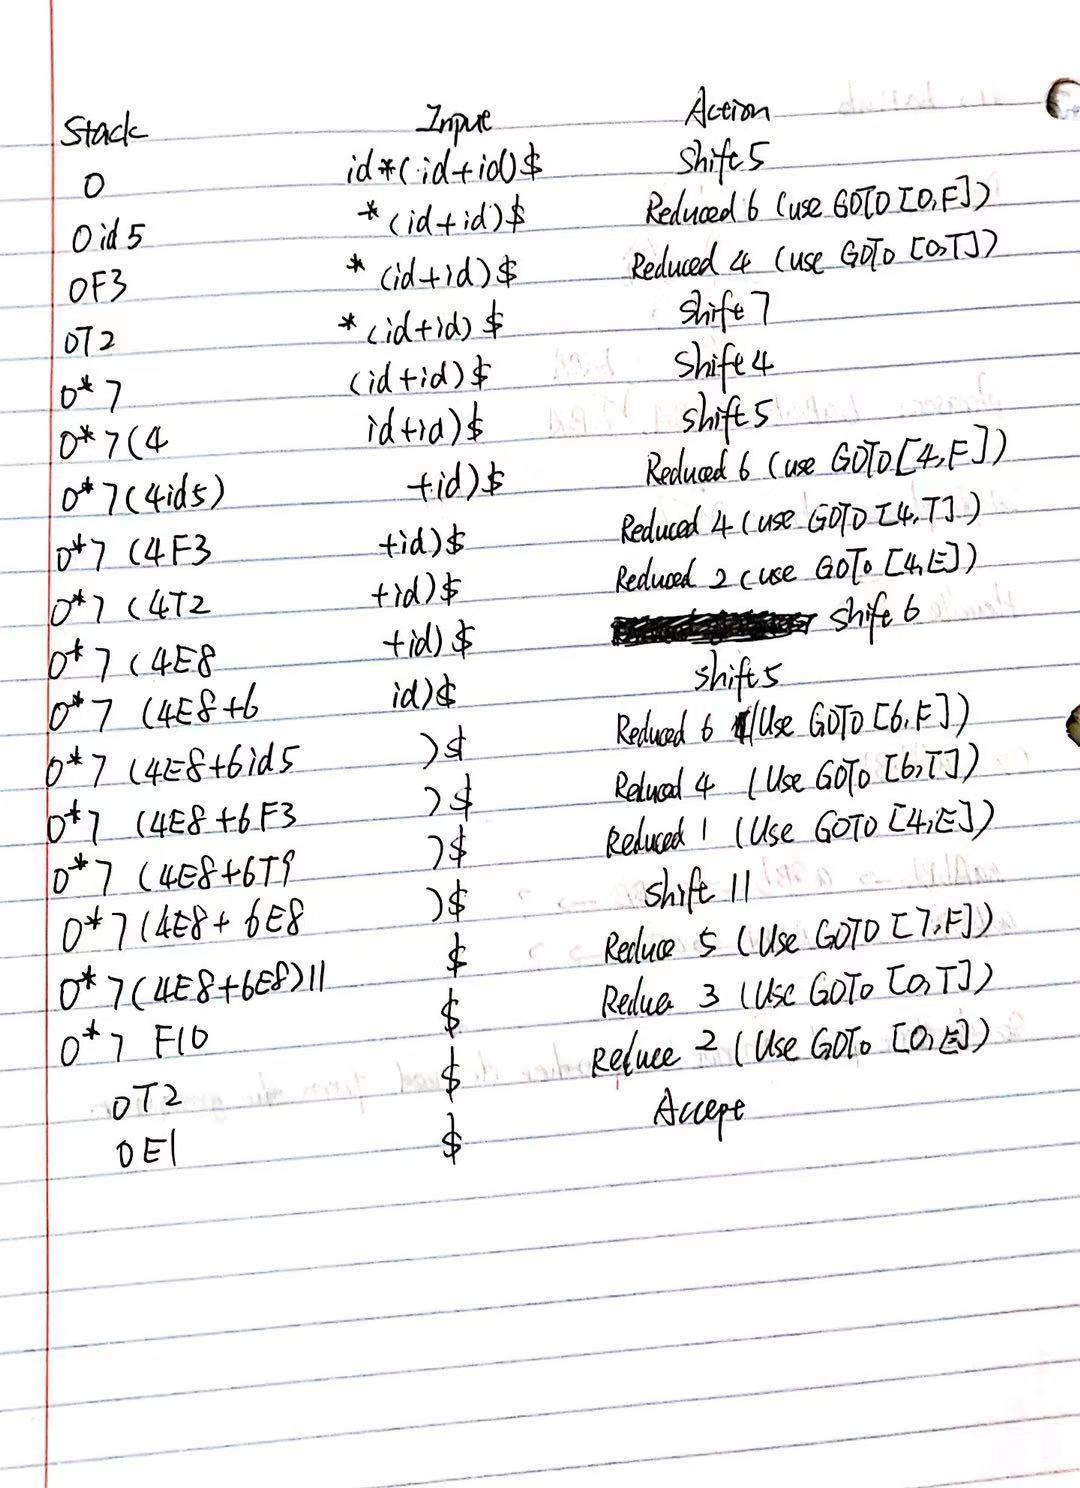 Stack Input Action
0 id*(id+id)$ Shift 5
0id5 *(id+id)$ Reduced 6 (use GOTO [0,F])
0F3 *(id+id)$ Reduced 4 (use GOTO [0,T])
0T2 *(id+id)$ Shift 7
0*7 (id+id)$ Shift 4
0*7(4 id+id)$ Shift 5
0*7(4id5) +id)$ Reduced 6 (use GOTO [4,F])
0*7(4F3 +id)$ Reduced 4 (use GOTO [4,T])
0*7(4T2 +id)$ Reduced 2 (use GOTO [4,E])
0*7(4E8 +id)$ Shift 6
0*7(4E8+6 id)$ Shift 5
0*7(4E8+6id5 )$ Reduced 6 (Use GOTO [6,F])
0*7(4E8+6F3 )$ Reduced 4 (Use GOTO [6,T])
0*7(4E8+6T9 )$ Reduced 1 (Use GOTO [4,E])
0*7(4E8+6E8 )$ Shift 11
0*7(4E8+6E8)11 $ Reduce 5 (Use GOTO [7,F])
0*7F10 $ Reduce 3 (Use GOTO [0,T])
0T2 $ Reduce 2 (Use GOTO [0,E])
0E1 $ Accept